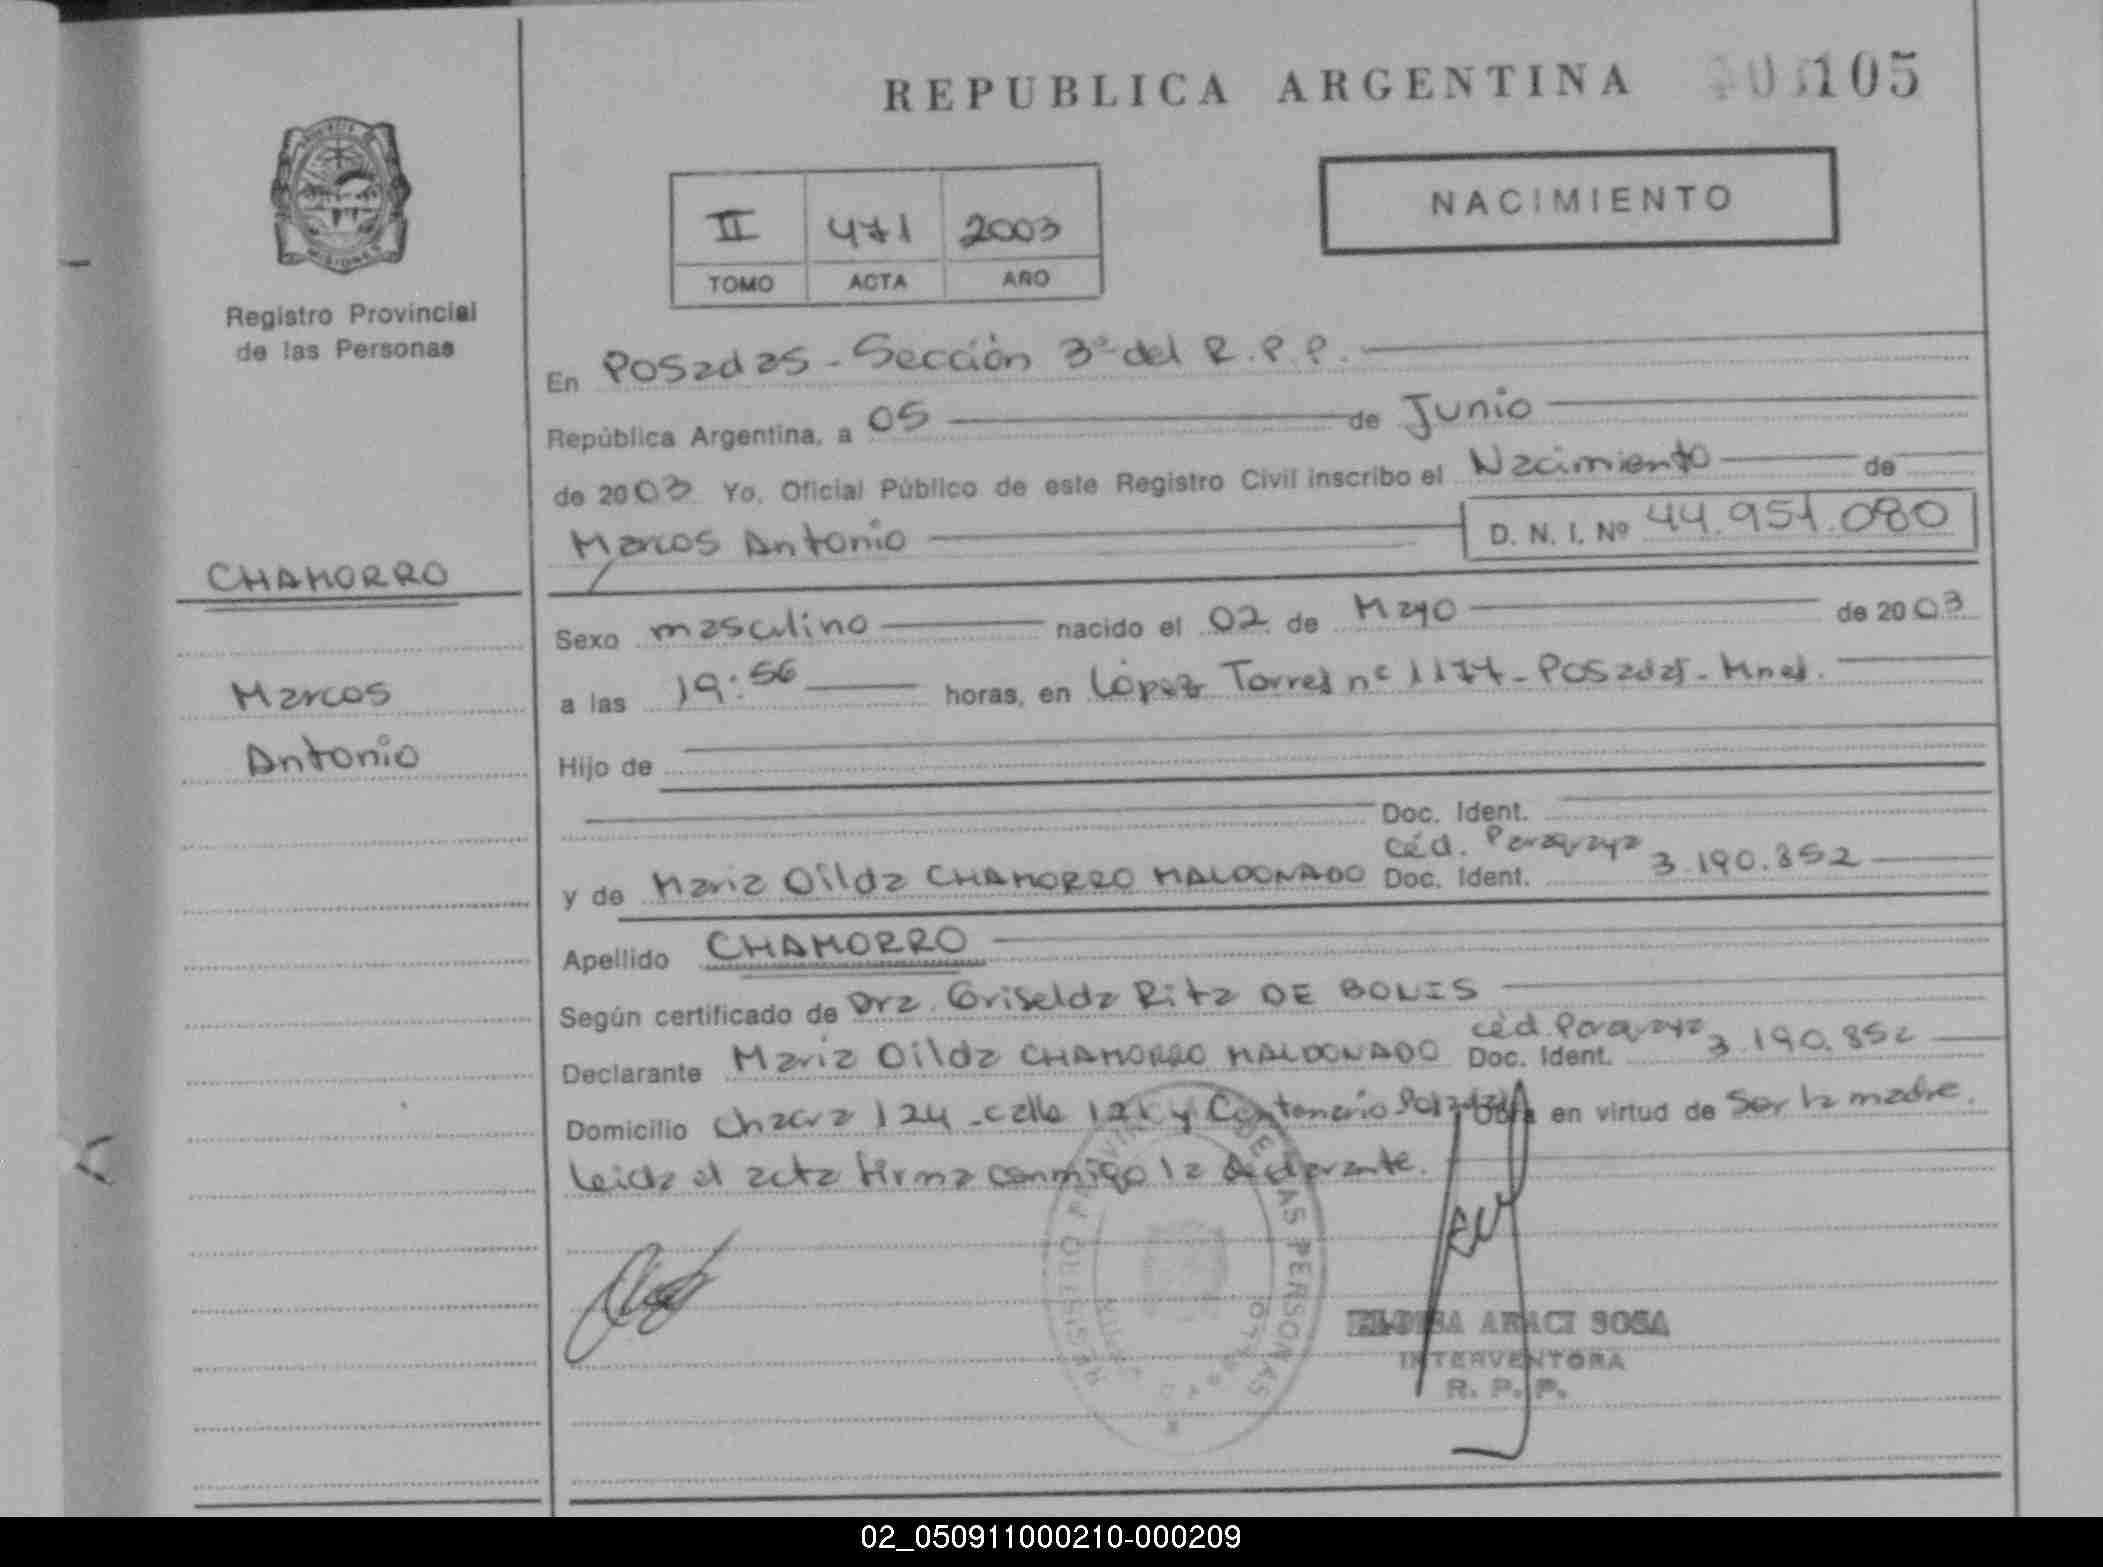 REPUBLICA ARGENTINA 105
NACIMIENTO
II 471 2003
TOMO ACTA AÑO
MISIONES
Registro Provincial
de las Personas
CHAMORRO
Marcos
Antonio
En Posadas - Sección 3ª del R.P.P.
República Argentina, a 05 de Junio
de 2003 Yo, Oficial Público de este Registro Civil inscribo el Nacimiento de
Marcos Antonio D. N. I. Nº 44.951.080
Sexo masculino nacido el 02 de Mayo de 2003
a las 19:56 horas, en López Torres nº 1177 - Posadas - Mnes.
Hijo de
Doc. Ident.
y de Maria Oilda CHAMORRO MALDONADO Céd. Paraguaya Doc. Ident. 3.190.852
Apellido CHAMORRO
Según certificado de Dra. Griselda Rita DE BONIS
Declarante Maria Oilda CHAMORRO MALDONADO Céd. Paraguaya Doc. Ident. 3.190.852
Domicilio Chacra 124 - calle 121 y Centenario Posadas en virtud de ser la madre.
Leida el acta firma conmigo la declarante.
REGISTRO PROVINCIAL DE LAS PERSONAS
ELOISA ARACI SOSA
INTERVENTORA
R. P. P.
02_050911000210-000209